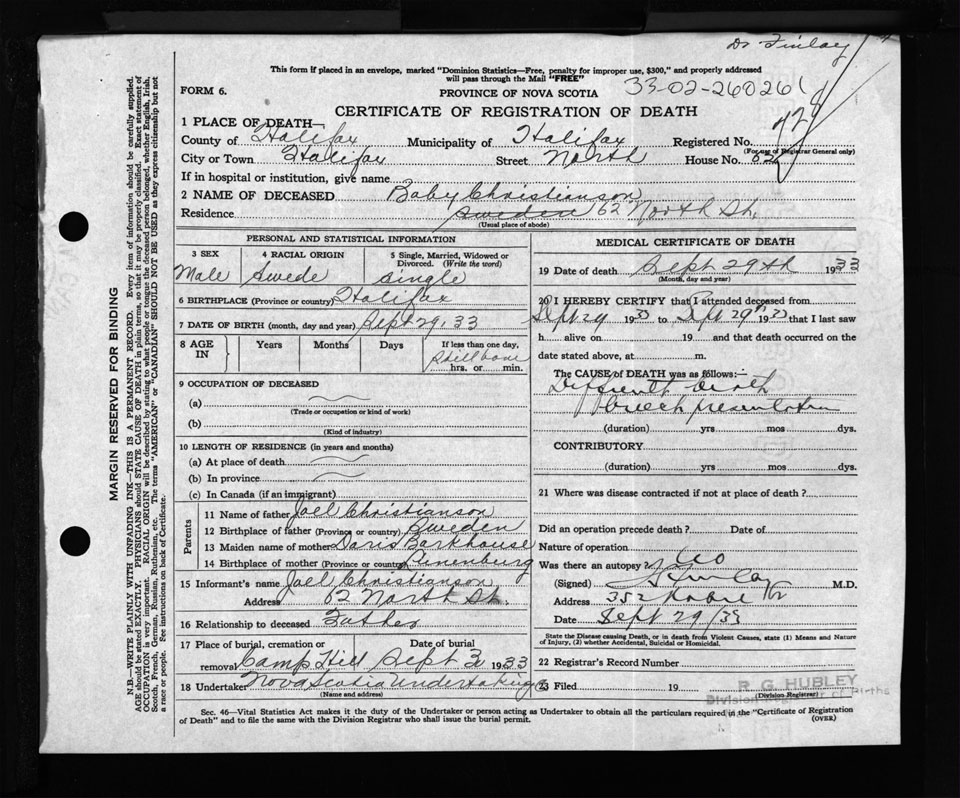 Dr Finlay
This form if placed in an envelope, marked "Dominion Statistics—Free, penalty for improper use, $300," and properly addressed
will pass through the Mail "FREE"
FORM 6.
PROVINCE OF NOVA SCOTIA
33-02-260261
CERTIFICATE OF REGISTRATION OF DEATH
1 PLACE OF DEATH—
County of Halifax Municipality of Halifax Registered No.
(For use of Registrar General only)
City or Town Halifax Street North House No. 62
If in hospital or institution, give name
2 NAME OF DECEASED Baby Christianson
Residence Sweden 62 North St.
(Usual place of abode)
PERSONAL AND STATISTICAL INFORMATION
3 SEX 4 RACIAL ORIGIN 5 Single, Married, Widowed or Divorced. (Write the word)
Male Swede single
6 BIRTHPLACE (Province or country) Halifax
7 DATE OF BIRTH (month, day and year) Sept 29, 33
8 AGE IN Years Months Days If less than one day,
Stillborn
hrs. or min.
9 OCCUPATION OF DECEASED
(a)
(Trade or occupation or kind of work)
(b)
(Kind of industry)
10 LENGTH OF RESIDENCE (in years and months)
(a) At place of death
(b) In province
(c) In Canada (if an immigrant)
Parents
11 Name of father Joel Christianson
12 Birthplace of father (Province or country) Sweden
13 Maiden name of mother Doris Barkhouse
14 Birthplace of mother (Province or country) Lunenburg
15 Informant's name Joel Christianson
Address 62 North St.
16 Relationship to deceased Father
17 Place of burial, cremation or removal Camp Hill Date of burial Sept 1933
18 Undertaker Nova Scotia Undertaking
(Name and address)
MEDICAL CERTIFICATE OF DEATH
19 Date of death Sept 29th 1933
(Month, day and year)
20 I HEREBY CERTIFY that I attended deceased from
Sept 29 1933 to Sept 29th 1933 that I last saw
h alive on 19 and that death occurred on the
date stated above, at m.
The CAUSE of DEATH was as follows:—
Difficult birth
breech presentation
(duration) yrs mos dys.
CONTRIBUTORY
(duration) yrs mos dys.
21 Where was disease contracted if not at place of death?
Did an operation precede death? Date of
Nature of operation
Was there an autopsy? No
(Signed) Finlay M.D.
Address 352 Robie
Date Sept 29/33
State the Disease causing Death, or in death from Violent Causes, state (1) Means and Nature
of Injury, (2) whether Accidental, Suicidal or Homicidal.
22 Registrar's Record Number
23 Filed 19
R. G. HUBLEY
Division Registrar of Births
(Division Registrar)
Sec. 46—Vital Statistics Act makes it the duty of the Undertaker or person acting as Undertaker to obtain all the particulars required in the "Certificate of Registration
of Death" and to file the same with the Division Registrar who shall issue the burial permit.
(OVER)
MARGIN RESERVED FOR BINDING
N.B.—WRITE PLAINLY WITH UNFADING INK—THIS IS A PERMANENT RECORD. Every item of information should be carefully supplied.
AGE should be stated EXACTLY. PHYSICIANS should STATE CAUSE OF DEATH in plain terms, so that it may be properly classified. Exact statement of
OCCUPATION is very important. RACIAL ORIGIN will be described by stating to what people or tongue the deceased person belonged, whether English, Irish,
Scotch, French, German, Russian, Ruthenian, etc. The terms "AMERICAN" or "CANADIAN" SHOULD NOT BE USED as they express citizenship but not
a race or people. See instructions on back of Certificate.